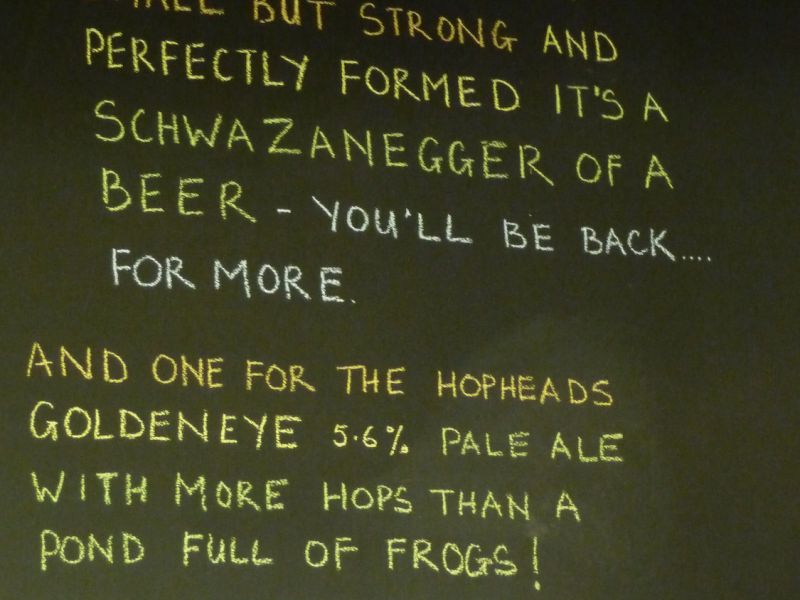 SMALL BUT STRONG AND
PERFECTLY FORMED IT'S A
SCHWAZANEGGER OF A
BEER - YOU'LL BE BACK....
FOR MORE.
AND ONE FOR THE HOPHEADS
GOLDENEYE 5.6% PALE ALE
WITH MORE HOPS THAN A
POND FULL OF FROGS!